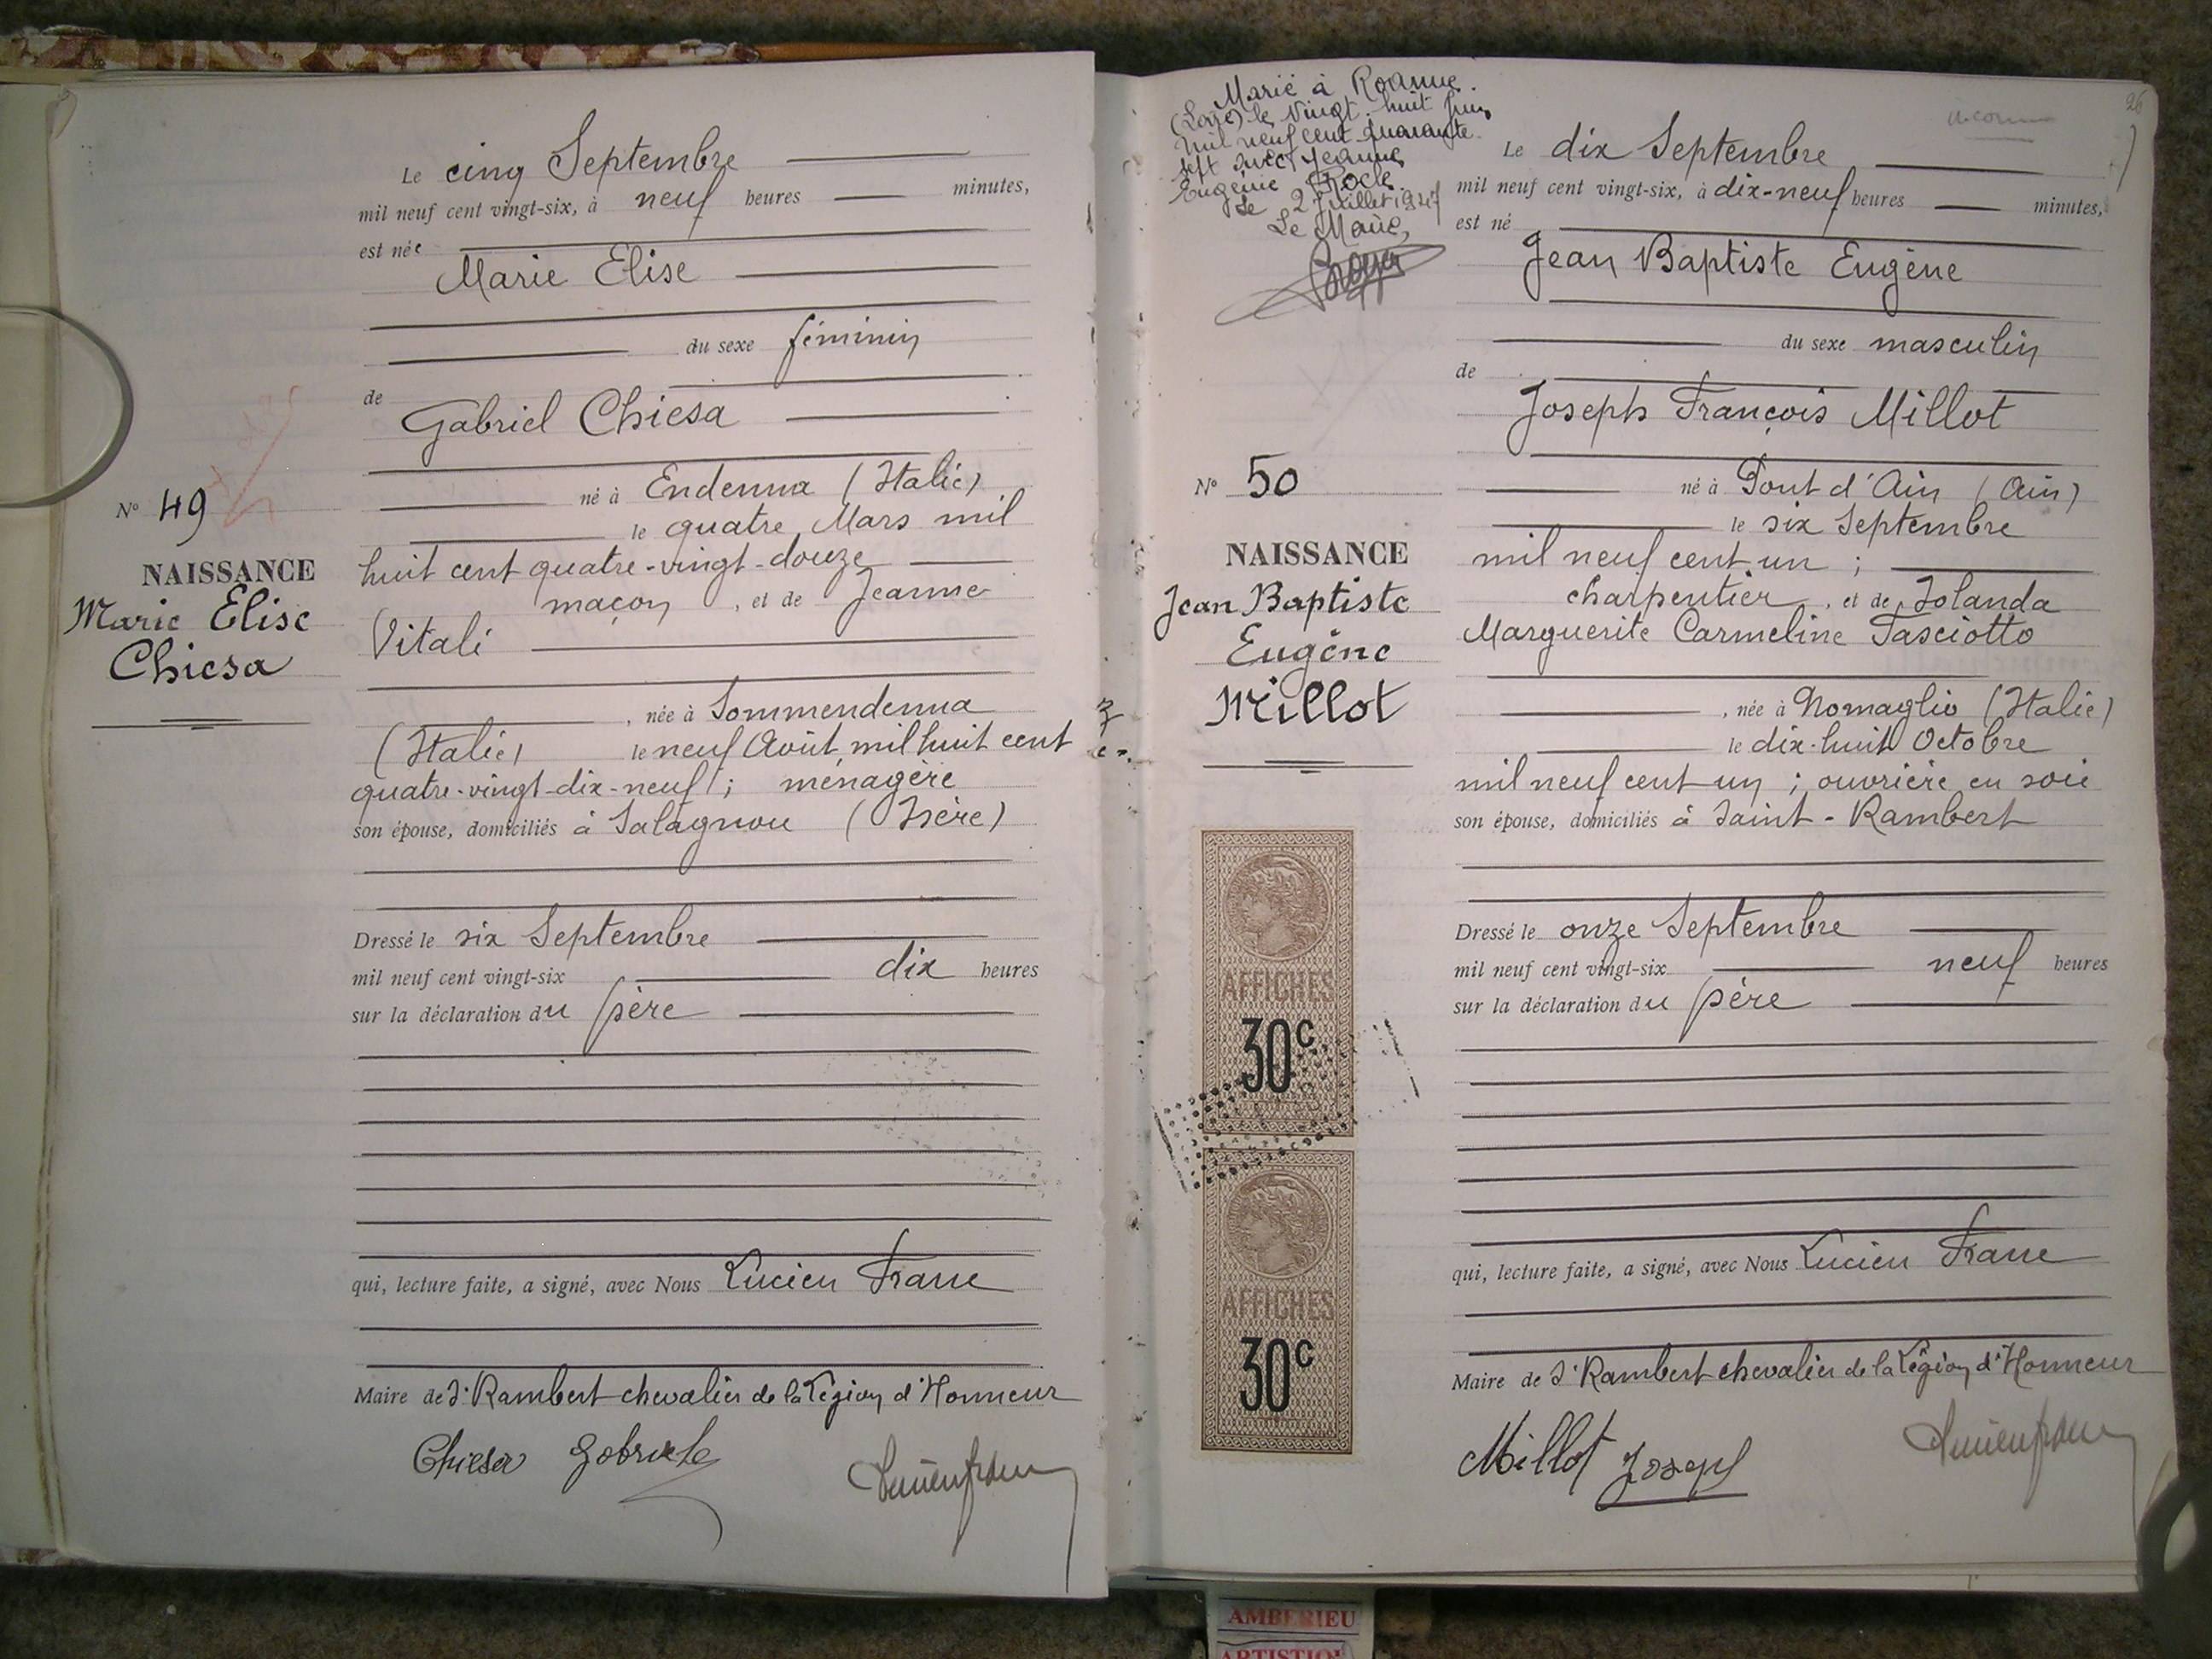 Le cinq Septembre
mil neuf cent vingt-six, à neuf heures minutes,
est née
Marie Elise
du sexe féminin
de
Gabriel Chiesa
né à Endenna (Italie)
le quatre Mars mil
huit cent quatre-vingt-douze
maçon, et de Jeanne
Vitali
, née à Sommendenna
(Italie) le neuf Août mil huit cent
quatre-vingt-dix-neuf; ménagère
son épouse, domiciliés à Salagnou (Isère)
Dressé le six Septembre
mil neuf cent vingt-six dix heures
sur la déclaration du père
qui, lecture faite, a signé, avec Nous Lucien Franc
Maire de St Rambert chevalier de la Légion d'Honneur
Chiesa Gobriele
N° 49
NAISSANCE
Marie Elise
Chiesa
Marié à Roanne
(Loire) le Vingt-huit Juin
mil neuf cent quarante
sept avec Jeanne
Eugénie
Le 2 Juillet 1947
Le Maire,
N° 50
NAISSANCE
Jean Baptiste
Eugène
Millot
AFFICHES
30c
AFFICHES
30c
26
Le dix Septembre
mil neuf cent vingt-six, à dix-neuf heures minutes,
est né
Jean Baptiste Eugène
du sexe masculin
de
Joseph François Millot
né à Pont d'Ain (Ain)
le six Septembre
mil neuf cent un ;
charpentier, et de Iolanda
Marguerite Carmeline Fasciotto
, née à Nomaglio (Italie)
le dix-huit Octobre
mil neuf cent un ; ouvrière en soie
son épouse, domiciliés à Saint-Rambert
Dressé le onze Septembre
mil neuf cent vingt-six neuf heures
sur la déclaration du père
qui, lecture faite, a signé, avec Nous Lucien Franc
Maire de St Rambert chevalier de la Légion d'Honneur
Millot Joseph
AMBERIEU